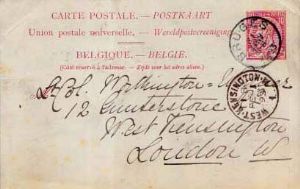 CARTE POSTALE. — POSTKAART
Union postale universelle. — Wereldpostvereeniging
BELGIQUE. — BELGIE.
(Côté réservé à l'adresse. — Zijde voor het adres alleen.)
12 Gunterstone
West Kensington
London W
BRUGES
WEST-KENSINGTON-W